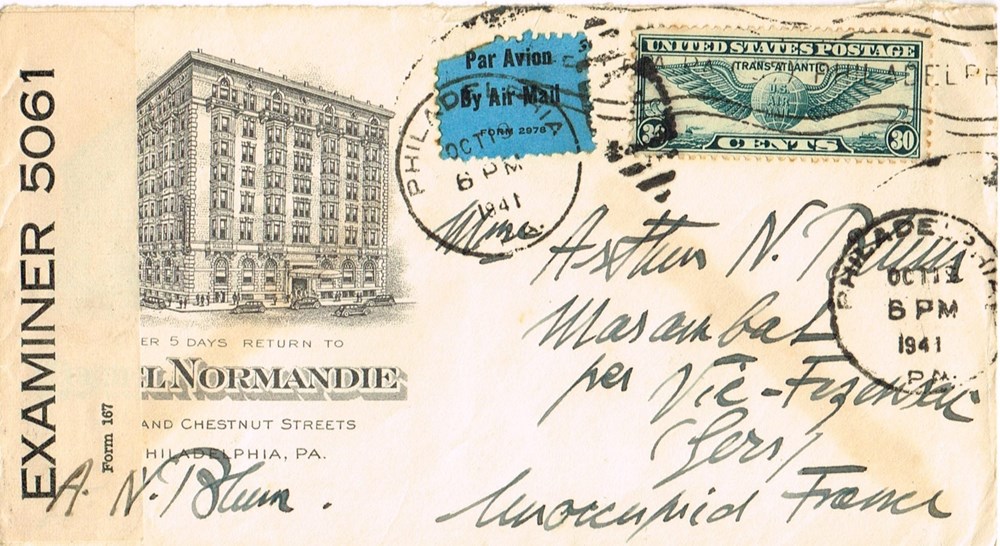 EXAMINER 5061
Form 167
ER 5 DAYS RETURN TO
EL NORMANDIE
AND CHESTNUT STREETS
PHILADELPHIA, PA.
A. N. Blum.
Par Avion
By Air Mail
FORM 2978
PHILADELPHIA
OCT 13
6 PM
1941
PA.
UNITED STATES POSTAGE
(TRANS-ATLANTIC)
U.S.
AIR
30 CENTS 30
PHILADELPH
PHILADELPHIA
OCT 13
6 PM
1941
PA.
Mme Arthur N. Blum
Marambat
per Vic-Fezensac
(Gers)
Unoccupied France